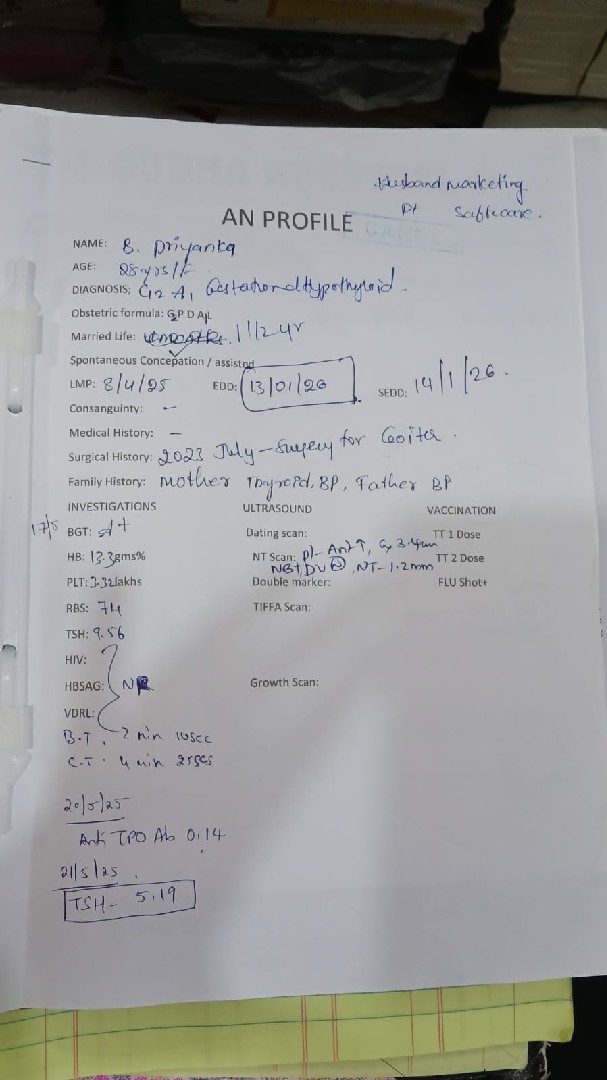 Husband Marketing
Pt Software.
AN PROFILE
NAME: B. Priyanka
AGE: 28yrs/F
DIAGNOSIS: G2 A1 Gestational Hypothyroid.
Obstetric formula: G2P D A1L
Married Life: 1 1/2 yr
Spontaneous Concepation / assisted
LMP: 8/4/25 EDD: 13/01/26 SEDD: 14/1/26.
Consanguinty: –
Medical History: –
Surgical History: 2023 July – Surgery for Goiter.
Family History: Mother Thyroid, BP, Father BP
INVESTIGATIONS ULTRASOUND VACCINATION
17/5 BGT: A+ Dating scan: TT 1 Dose
HB: 13.3gms% NT Scan: Pl- Ant↑, Cx 3.4cm TT 2 Dose
NB+, DV, NT- 1.2mm
PLT: 3.32lakhs Double marker: FLU Shot+
RBS: 74 TIFFA Scan:
TSH: 9.56
HIV:
HBSAG: NR Growth Scan:
VDRL:
B.T. 2 min 10sec
C.T. 4 min 25secs
20/5/25
Anti TPO Ab 0.14
21/5/25.
TSH- 5.19